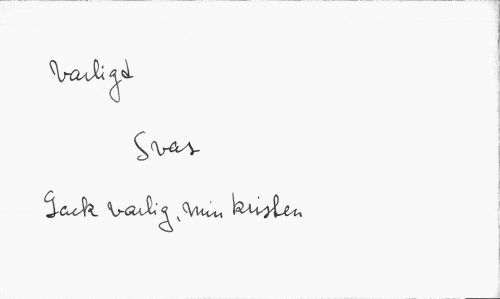 Varligt
Svar
Gack varlig, min kristen